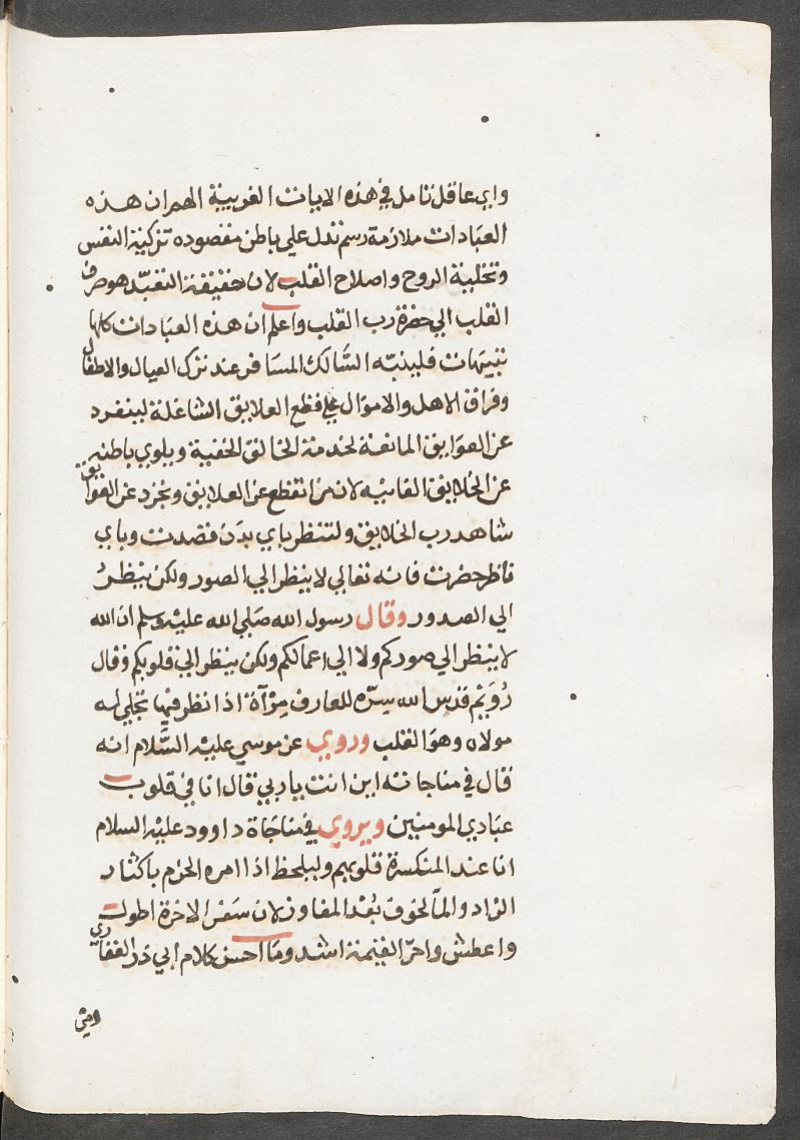 واي عاقل تامل في هذه الايات الغريبة الهم ان هذه
العبادات ملازمة رسم تدل علي باطن مقصوده تزكية النفس
وتخلية الروح واصلاح القلب لان حقيقة التعبّد هو صرف
القلب الي حضرة رب القلب واعلم ان هذه العبادات كلها
تنبيهات فلينبّه السَّالك المسَافر عند ترك العيال والاطفال
وفراق الاهل والاموال علي قطع العلايق الشاغلة لينفرد
عن العوَايق المانعة لخدمة الخالق الخفية ويلوي باطنه
عن الخَلايق الفانيه لان من انقطع عن العلايق وتجرّد عن العوايق
شاهد رب الخلايق ولتنظر باي بدَن قصدت وباي
ناظر حضرت فانه تعالي لا ينظر الي الصور ولكن ينظرُ
الي الصدور وقال رسول الله صَلي الله عليْه وسلم ان الله
لا ينظر الي صوركم ولا الي اعمالكم ولكن ينظر الي قلوبكم وقال
رُوَيْم قدس الله سِرّه للعارف مِرْآة اذا نظر فيها تجلي له
مولاه وهوَ القلب وروي عن موسي عليْه السَّلام انه
قال في مناجاته اين انت يا ربي قال انا في قلوب
عبَادي المومنين ويروي في مناجَاة داوود عليْه السلام
انا عند المنكسرة قلوبهم وليلحظ اذا امره الحزم باكثار
الزاد والمآ لخوف بُعْد المفاوز لان سَفر الاخرة اطول
واعطش واحرّ القيمة اشد ومَا احسن كلام ابي ذر الغفاري
وهي